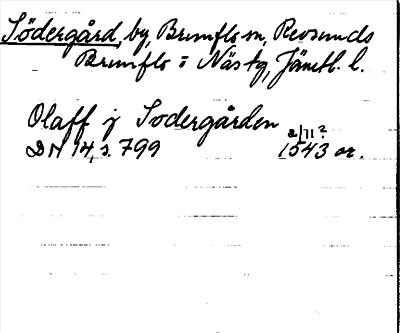 Södergård, by, Brunflo sn, Revsunds
Brunflo o Näs tg, Jämtl. l.
Olaff j Sodergården
2/11 ?
DN 14, s. 799 1543 or.